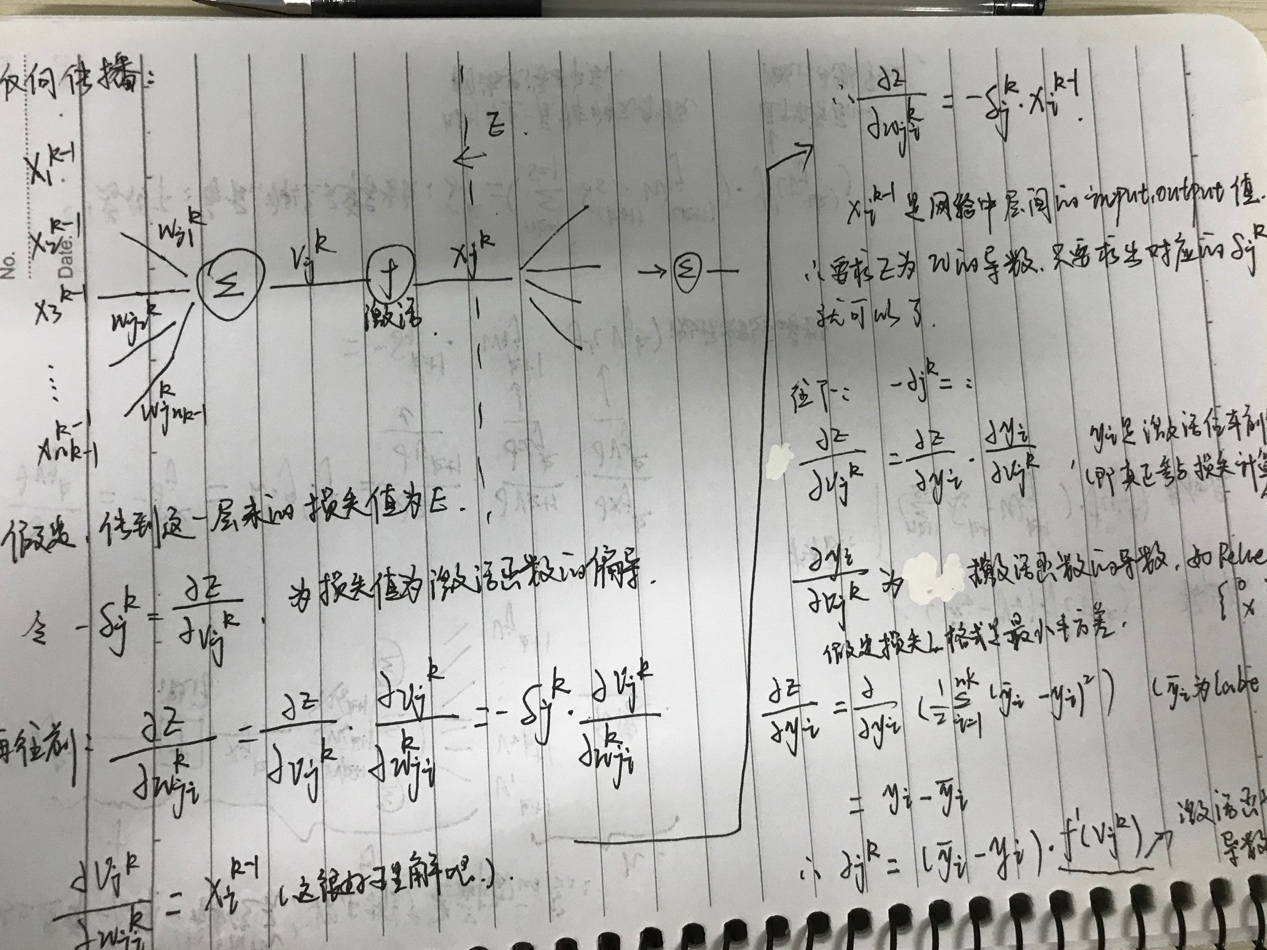 反向传播:
No.
Date:
E.
X₁^{k-1}
X₂^{k-1}
X₃^{k-1}
⋮
X_{nk-1}^{k-1}
W_{j1}^k
W_{j2}^k
W_{jnk-1}^k
Σ V_j^k f X_j^k → Σ
激活
假定、传到这一层来的损失值为E.
令 -δ_j^k = ∂E/∂V_j^k. 为损失值为激活函数的偏导.
再往前: ∂E/∂W_{ji}^k = ∂E/∂V_j^k · ∂V_j^k/∂W_{ji}^k = -δ_j^k · ∂V_j^k/∂W_{ji}^k
∂V_j^k/∂W_{ji}^k = X_i^{k-1} (这很好理解吧.)
∴ ∂E/∂W_{ji}^k = -δ_j^k · X_i^{k-1}.
X_i^{k-1} 是网络中层间的input,output值.
∴要求E为W的导数、只要求出对应的δ_j^k
就可以了.
往下: -δ_j^k = :
∂E/∂V_j^k = ∂E/∂y_i · ∂y_i/∂V_j^k ,
y_i是激活
(即真正参与损失计算
∂y_i/∂V_j^k 为 激活函数的导数, 如Relu
{ 0
x
假定损失 格式是最小平方差.
∂E/∂y_i = ∂/∂y_i (½ Σ_{i=1}^{nk} (ȳ_i - y_i)²) (ȳ_i为lable
= y_i - ȳ_i
∴ δ_j^k = (ȳ_i - y_i) · f'(V_j^k) → 激活函
导数